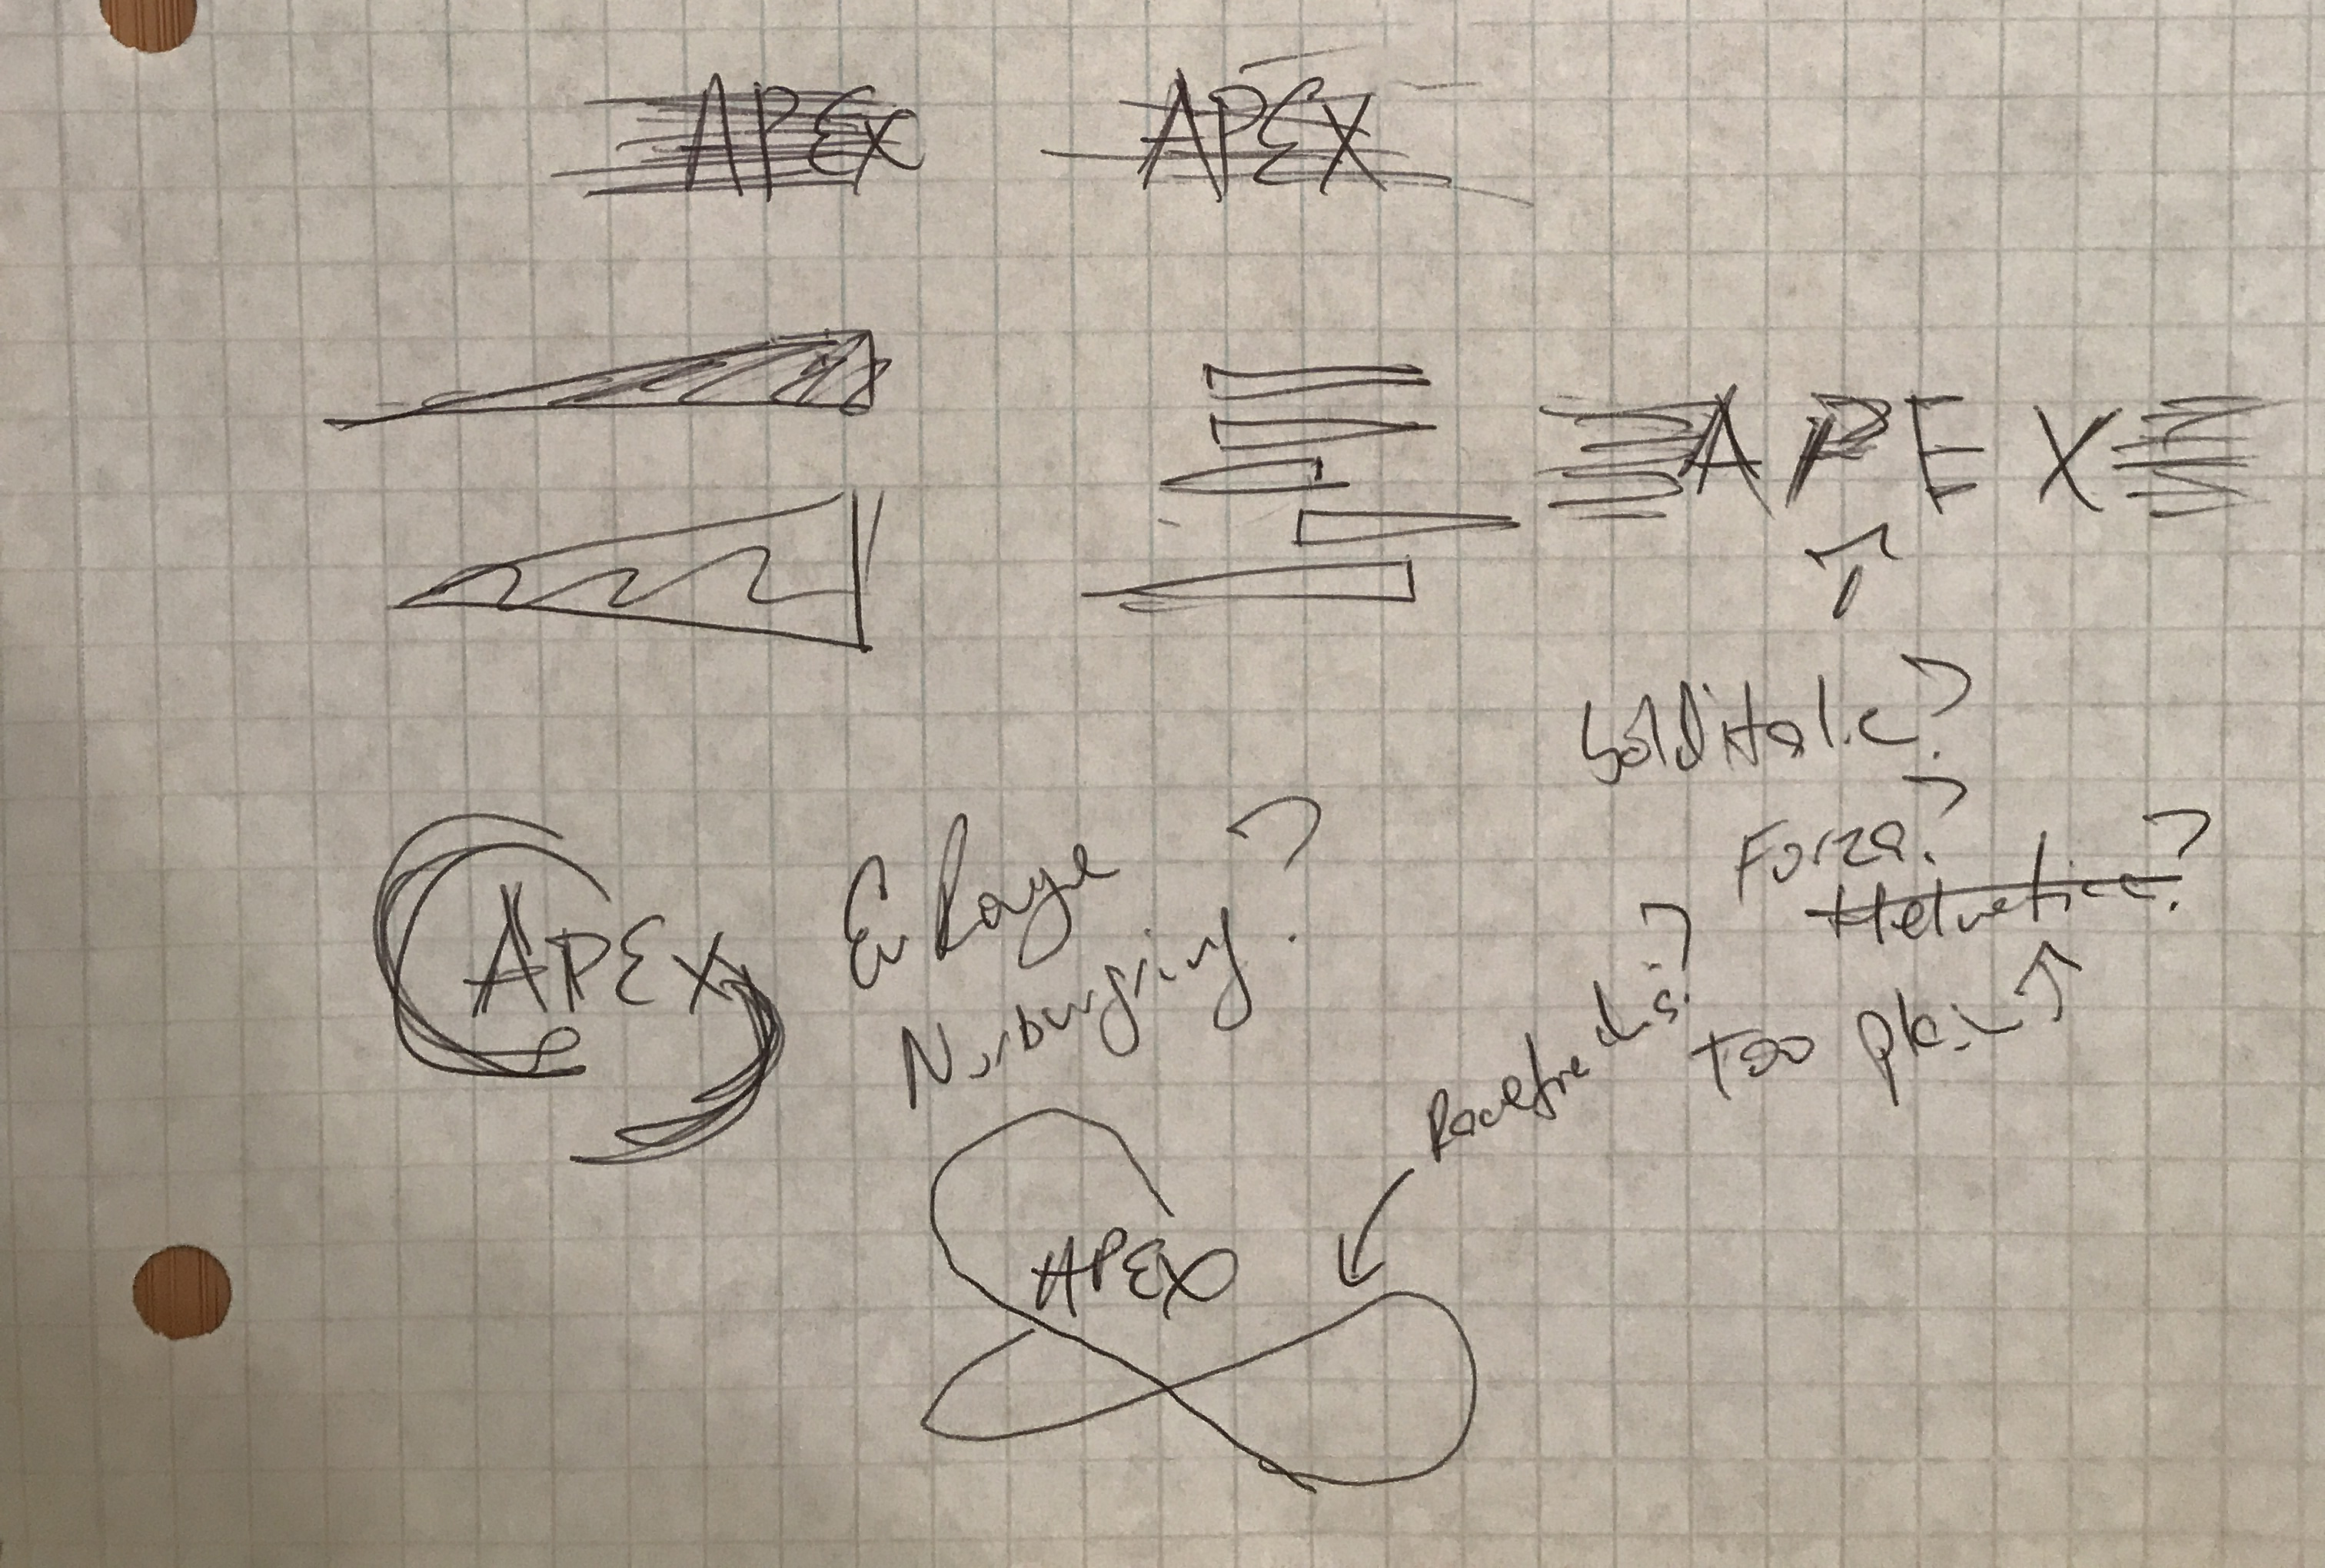 APEX
APEX
APEX
bold italic?
Forza?
Helvetica?
Too plain
APEX
Eu Rouge
Nurburgring?
Racetracks?
APEX